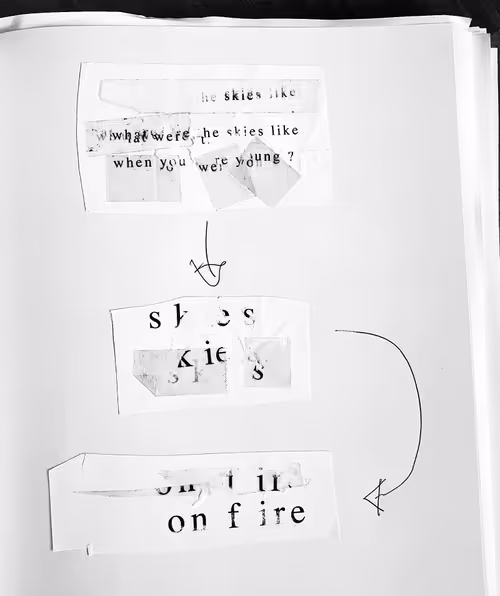 he skies like
what were the skies like
when you were young ?
skies
kies
on fire
on fire